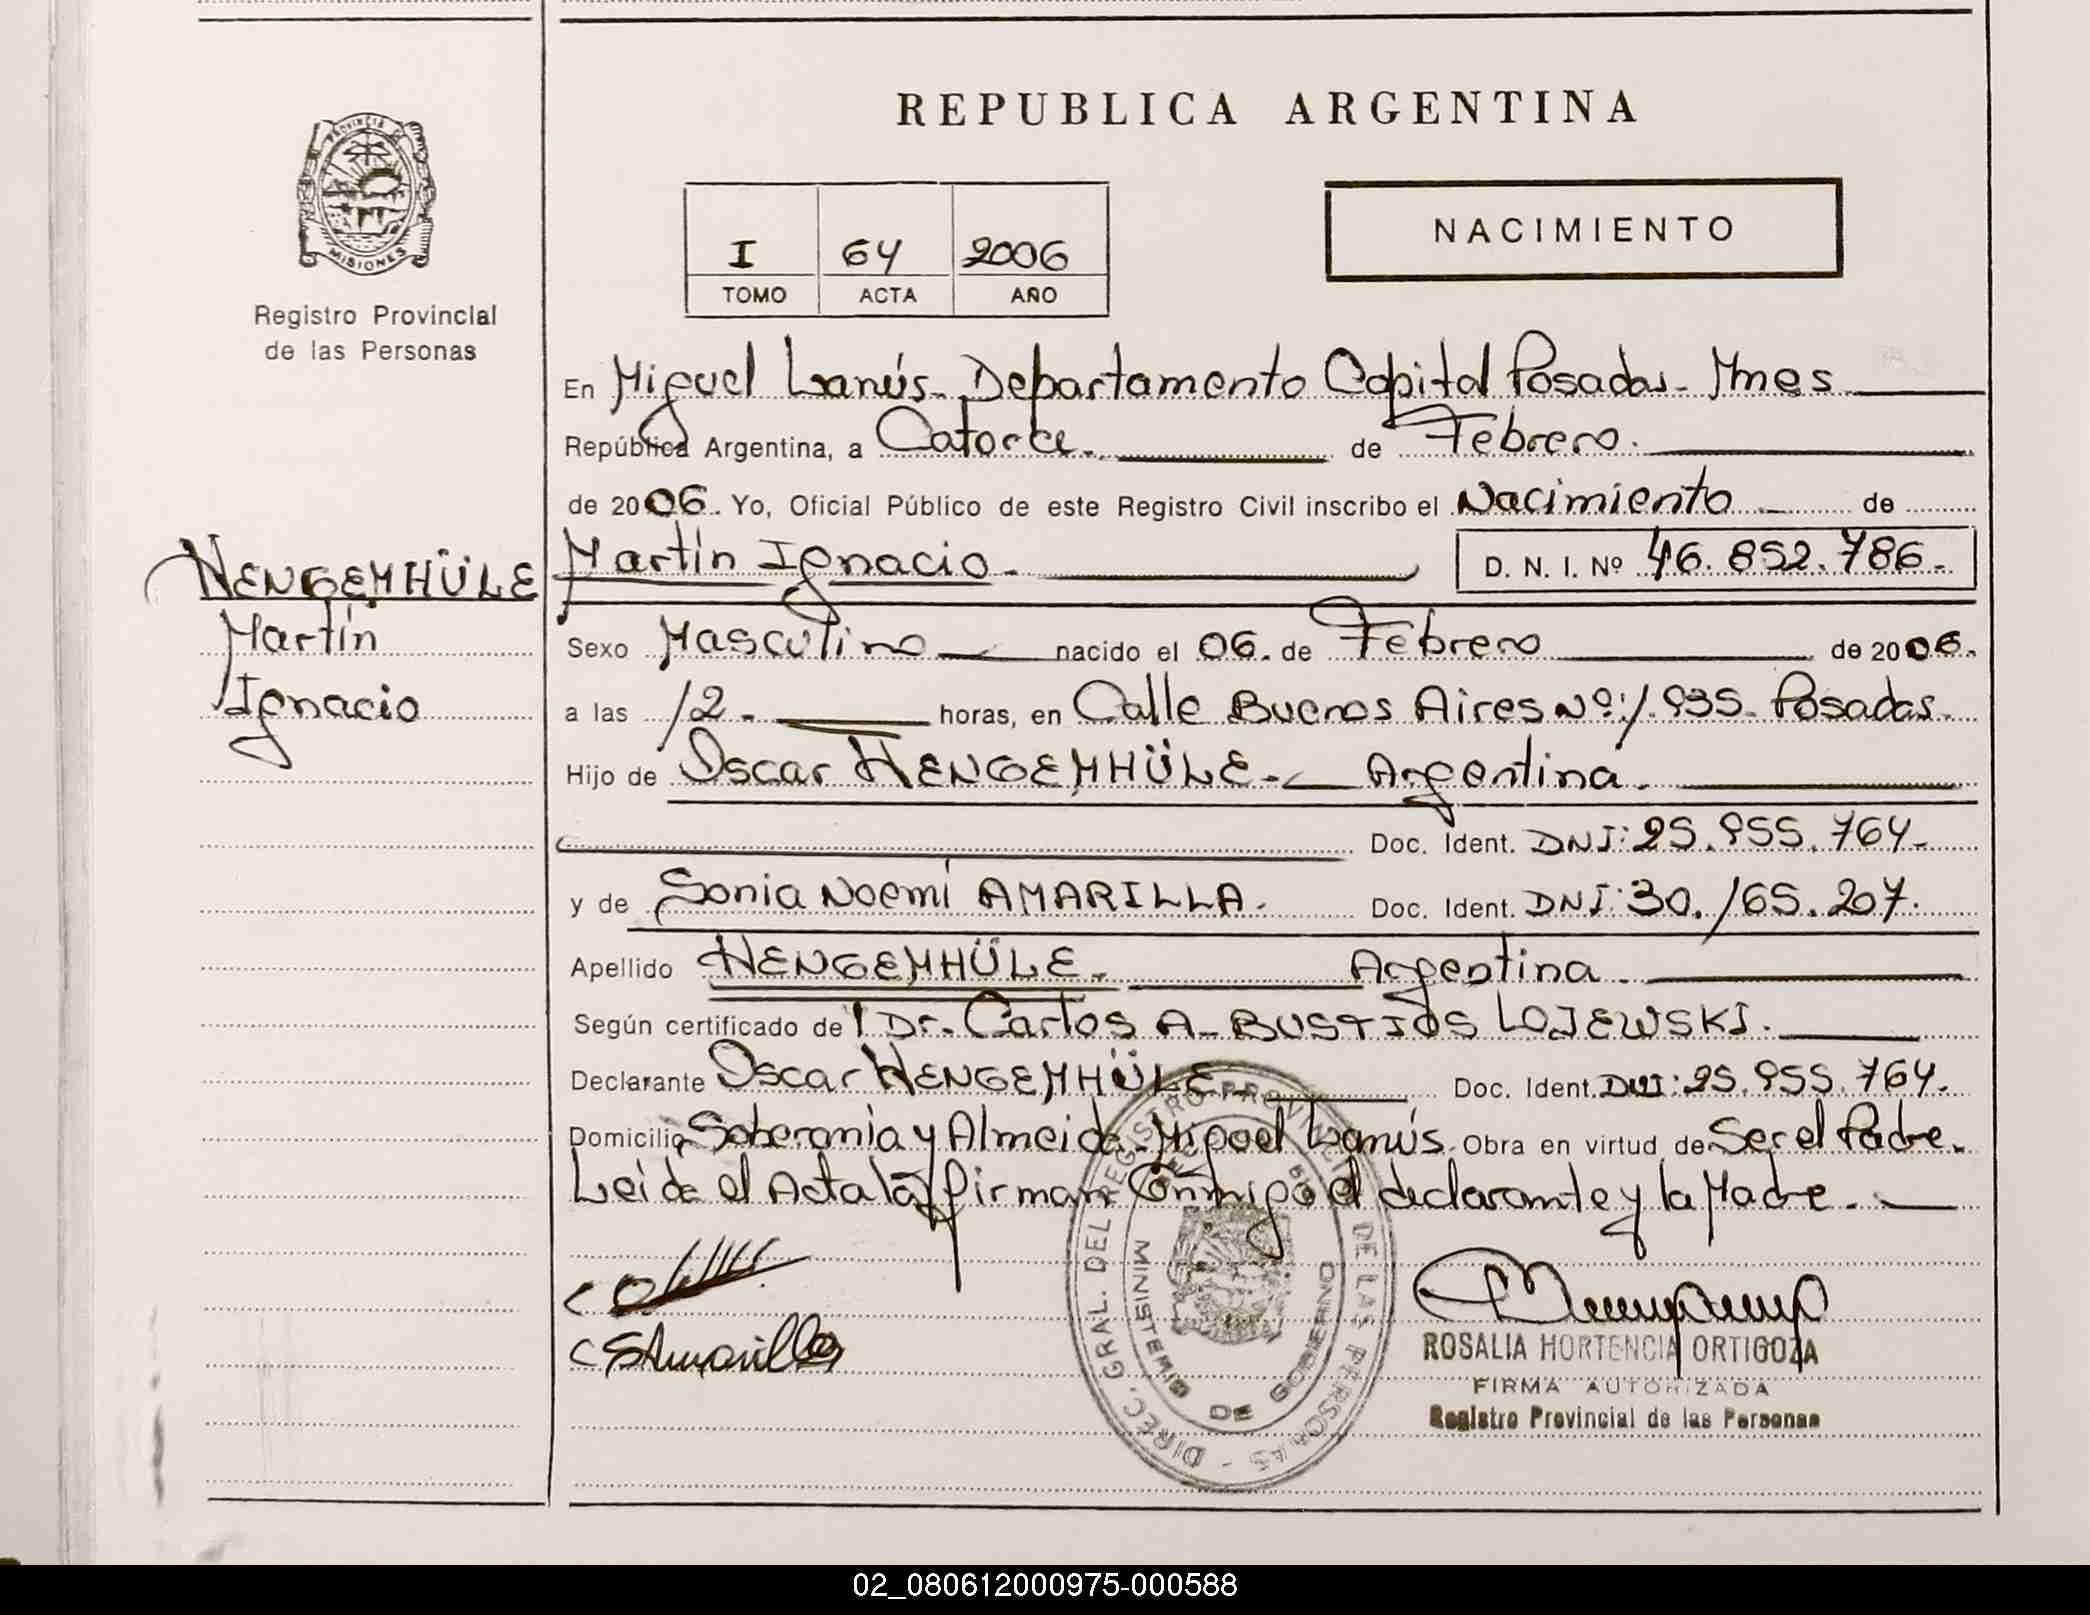 REPUBLICA ARGENTINA
PROVINCIA DE
MISIONES
Registro Provincial
de las Personas
I 64 2006
TOMO ACTA AÑO
NACIMIENTO
En Miguel Lanús. Departamento Capital Posadas - Mnes
República Argentina, a Catorce. de Febrero.
de 2006. Yo, Oficial Público de este Registro Civil inscribo el Nacimiento de
Martín Ignacio. D. N. I. Nº 46.852.786.
HENGEMHÜLE
Martín
Ignacio
Sexo Masculino nacido el 06. de Febrero de 2006.
a las 12. horas, en Calle Buenos Aires Nº: 1.935. Posadas.
Hijo de Oscar HENGEMHÜLE. Argentina.
Doc. Ident. DNI: 25.955.764.
y de Sonia Noemí AMARILLA. Doc. Ident. DNI: 30.165.207.
Apellido HENGEMHÜLE. Argentina.
Según certificado de l Dr. Carlos A. BUSTIOS LOJEWSKI.
Declarante Oscar HENGEMHÜLE. Doc. Ident. DNI: 25.955.764.
Domicilio Soberanía y Almeida. Miguel Lanús. Obra en virtud de Ser el Padre.
Leida el Acta la firman Conmigo el declarante y la Madre.
SAmarilla
DIREC. GRAL. DEL REGISTRO PROVINCIAL DE LAS PERSONAS -
MINISTERIO DE GOBIERNO
ROSALIA HORTENCIA ORTIGOZA
FIRMA AUTORIZADA
Registro Provincial de las Personas
02_080612000975-000588